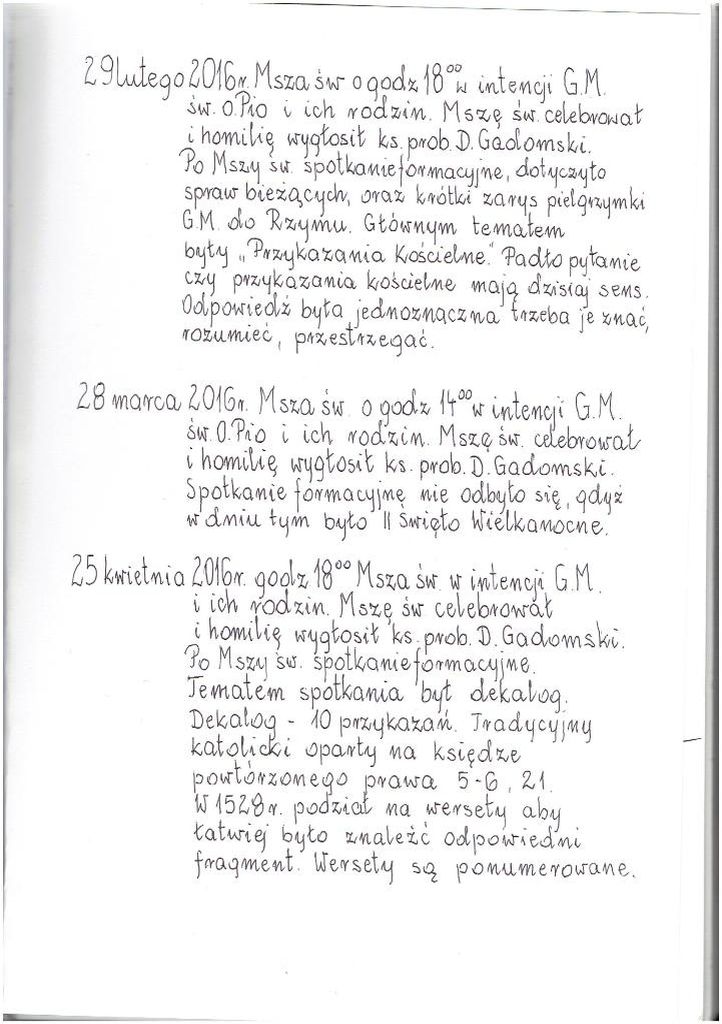 29 lutego 2016r. Msza św o godz 18⁰⁰ w intencji G.M.
św. O.Pio i ich rodzin. Mszę św. celebrował
i homilię wygłosił ks. prob. D. Gadomski.
Po Mszy św. spotkanie formacyjne, dotyczyło
spraw bieżących, oraz krótki zarys pielgrzymki
G.M. do Rzymu. Głównym tematem
były „Przykazania Kościelne." Padło pytanie
czy przykazania kościelne mają dzisiaj sens.
Odpowiedź była jednoznaczna trzeba je znać,
rozumieć, przestrzegać.
28 marca 2016r. Msza św. o godz 14⁰⁰ w intencji G.M.
św. O.Pio i ich rodzin. Mszę św. celebrował
i homilię wygłosił ks. prob. D. Gadomski.
Spotkanie formacyjnę nie odbyło się, gdyż
w dniu tym było II Święto Wielkanocne.
25 kwietnia 2016r. godz 18⁰⁰ Msza św. w intencji G.M.
i ich rodzin. Mszę św celebrował
i homilię wygłosił ks. prob. D. Gadomski.
Po Mszy św. spotkanie formacyjne.
Tematem spotkania był dekalog.
Dekalog - 10 przykazań. Tradycyjny
katolicki oparty na księdze
powtórzonego prawa 5-6, 21.
W 1528r. podział na wersety aby
łatwiej było znaleźć odpowiedni
fragment. Wersety są ponumerowane.